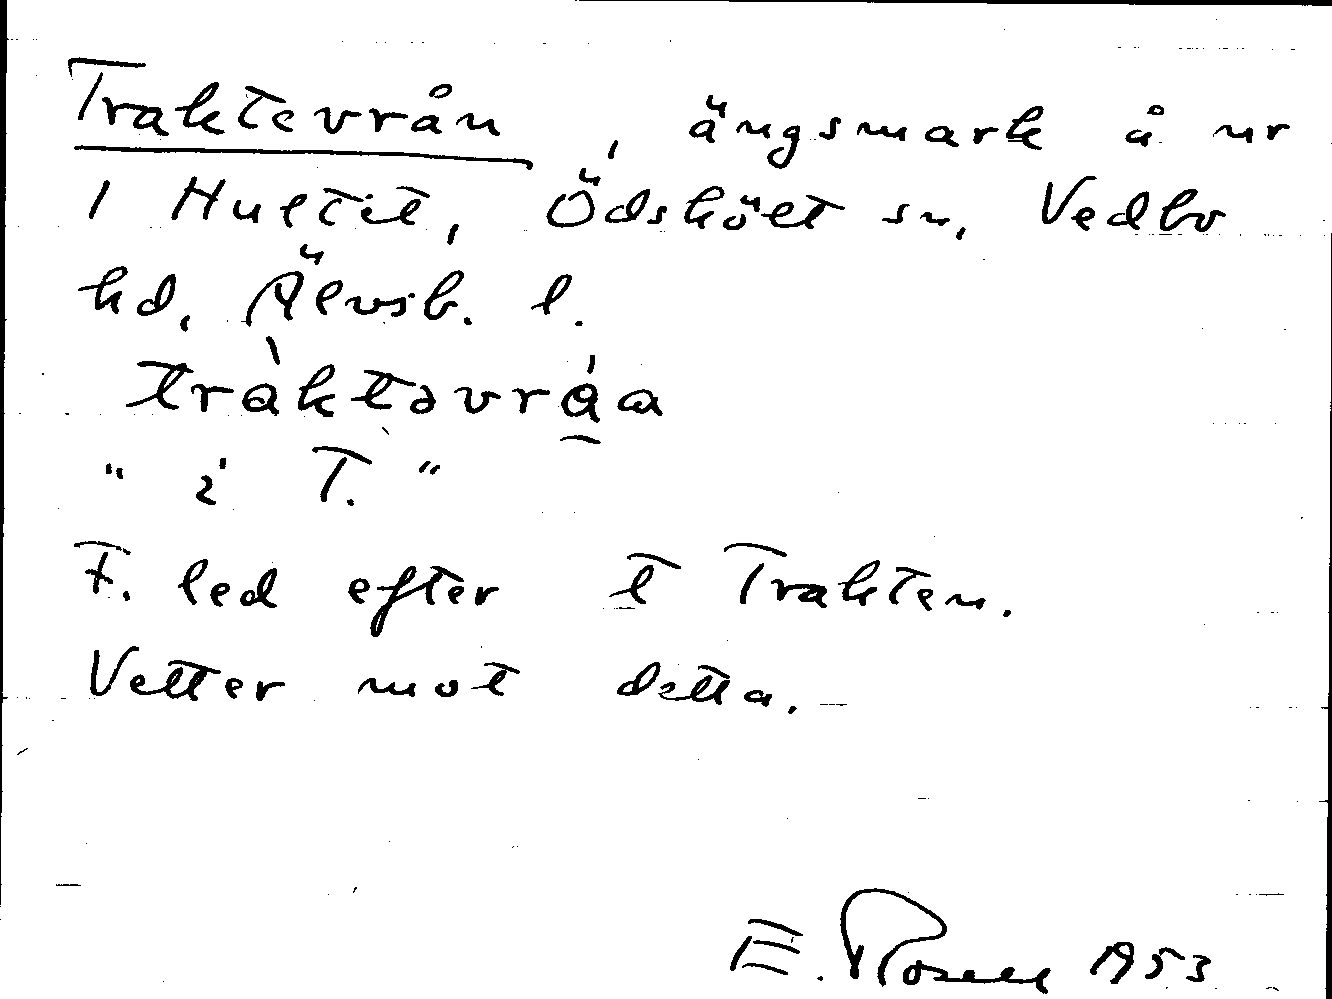 Traktevrån, ängsmark å nr
1 Hultet, Ödskölt sn, Vedbo
hd, Älvsb. l.
tràktəvrá̱a
"i T."
F. led efter t Trakten.
Vetter mot detta.
E. Rosell 1953